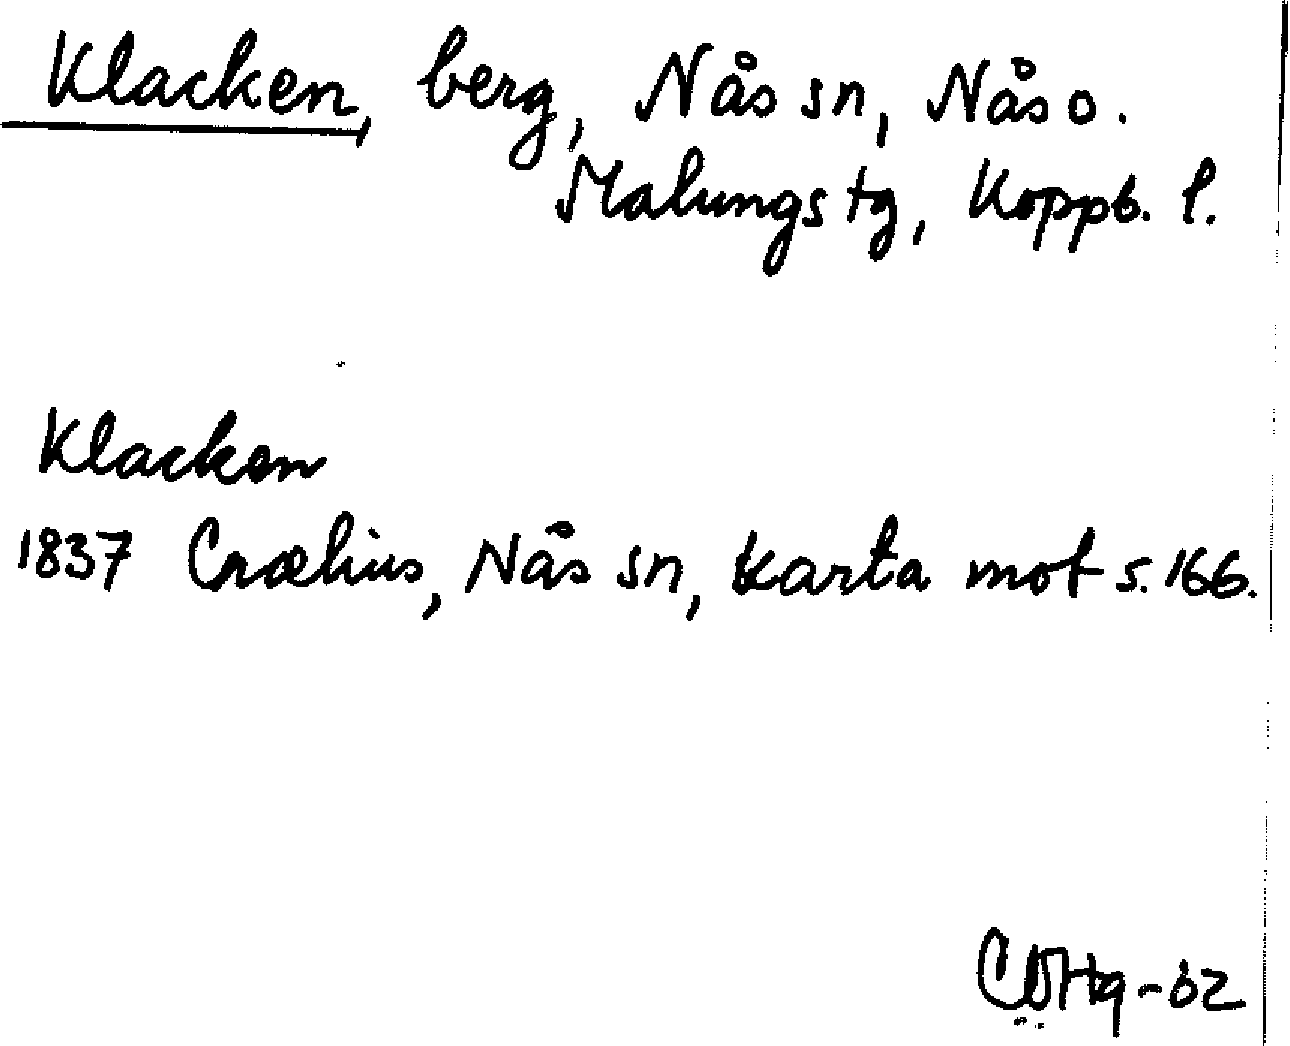 Klacken, berg, Nås sn, Nås o.
Malungs tg, Koppb. l.
Klacken
1837 Crælius, Nås sn, karta mot s. 166.
-62